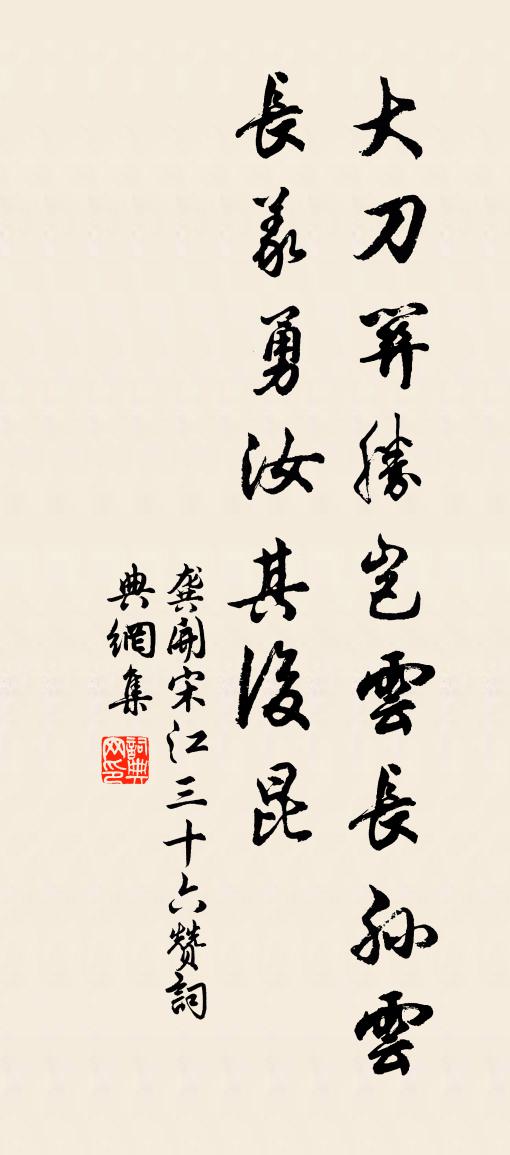 大刀關勝豈雲長孫雲
長義勇汝其後昆
龔開宋江三十六贊詞
典網集
詞典网印